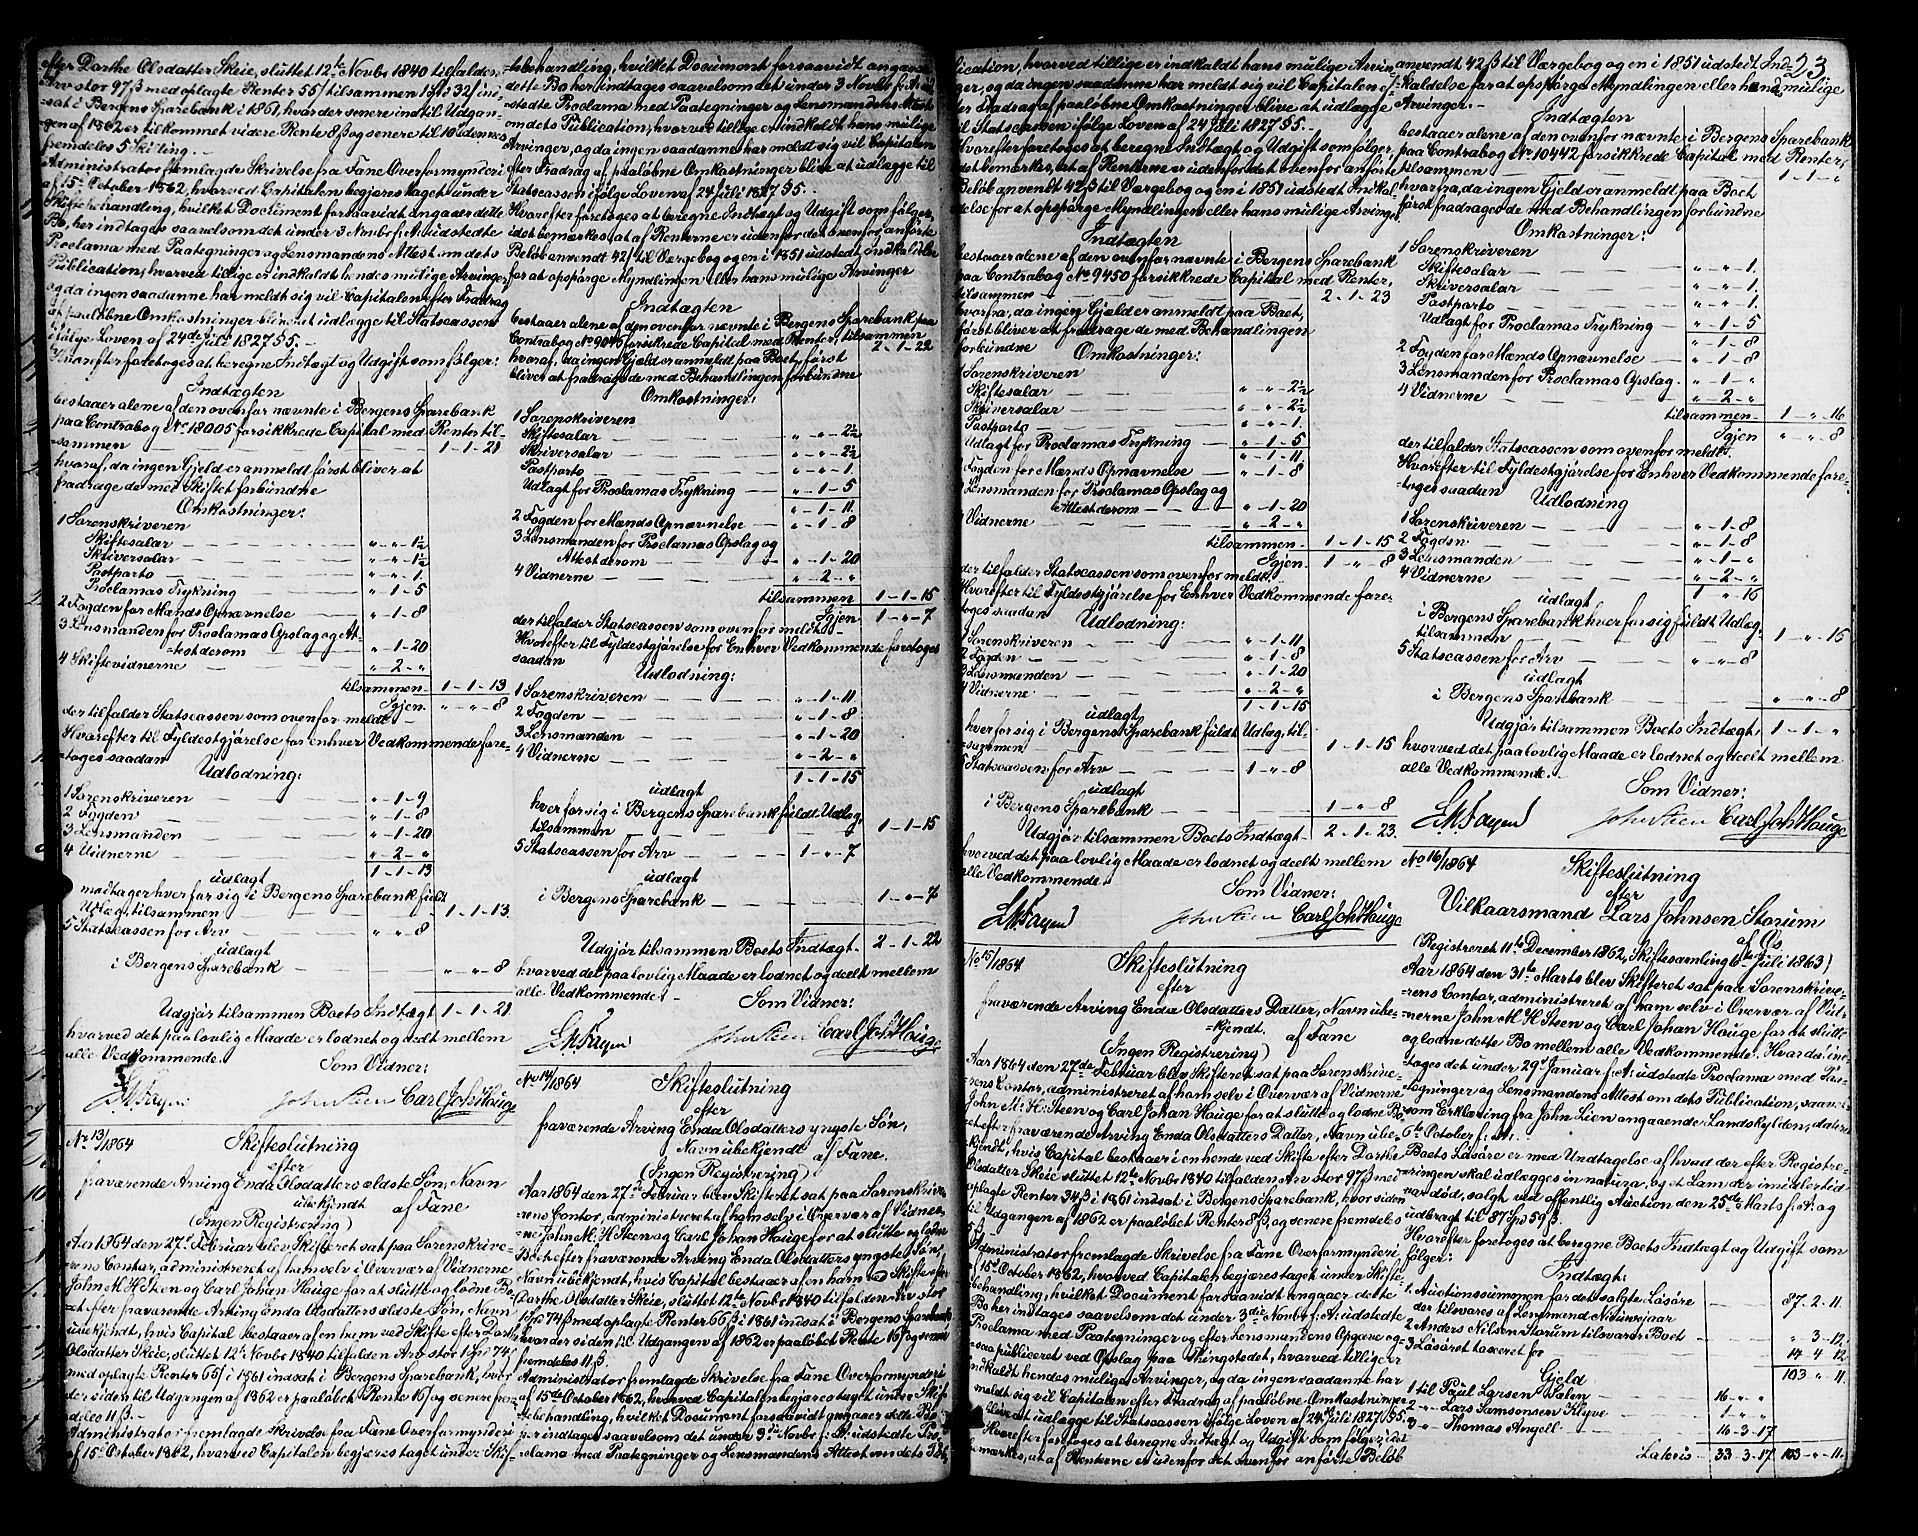 efter Dorthe Olsdatter Skeie, sluttet 12te Novbr 1840 tilfalden
Arv stor 97 ß med oplagte Renter 55/ tilsammen 1 Spd 32/ ind-
-sat i Bergens Sparebank i 1861, hvorder senere indtil Udgan-
gen af 1862 er tilkommet videre Rente 8 ß og senere til
fremdeles 5 Skilling.
Administrator fremlagde Skrivelse fra Fane Overformynderi
af 15de October 1862, hvorved Capitalen begjæres taget under
Skiftebehandling, hvilket Document forsaavidt angaaer dette
Bo, her indtages saavelsom det under 3 Novbr f: A: udstedte
Proclama med Paategninger og Lensmandens Attest om dets
Publication, hvorved tillige er indkaldt hendes mulige Arvinger
og da ingen saadanne har meldt sig vil Capitalen efter Fradrag
af paaløbne Omkostninger blive at udlægge til Statscassen
ifølge Loven af 24de Juli 1827 § 5. -
Hvorefter foretoges at beregne Indtægt og Udgift som følger:
Indtægten
bestaaer alene af den ovenfor nævnte i Bergens Sparebank
paa Contrabog No 18005 forsikkrede Capital med Renter til-
-sammen 1-1-21
hvoraf, da ingen Gjeld er anmeldt først bliver at
fradrage de med Skiftet forbundne
Omkostninger:
1 Sorenskriveren
Skiftesalar " - " - 1½
Skriversalar " - " - 1½
Postporto " - " - 1
Proclamas Trykning " - 1 - 5
2 Fogden for Mænds Opnævnelse " - 1 - 8
3 Lensmanden for Proclamas Opslag og At-
-test derom " - 1 - 20
4 Skiftevidnerne " - 2 - "
tilsammen 1 - 1 - 13
Igjen " - " - 8
der tilfalder Statscassen som ovenfor meldt.
Hvorefter til Fyldestgjørelse for enhver Vedkommende fore-
-toges saadan
Udlodning:
1 Sorenskriveren " - 1 - 9
2 Fogden " - 1 - 8
3 Lensmanden " - 1 - 20
4 Vidnerne " - 2 - "
udlagt 1 - 1 - 13
modtager hver for sig i Bergens Sparebank fuldt
Udlag, tilsammen 1 - 1 - 13.
5 Statscassen for Arv " - " - 8
udlagt
i Bergens Sparebank " - " - 8
Udgjør tilsammen Boets Indtægt 1 - 1 - 21
hvorved det paa lovlig Maade er lodnet og deelt mellem
alle Vedkommende.
Som Vidner:
John Steen Carl Joh Hauge
No 13/1864 Skifteslutning
efter
fraværende Arving Enda Olsdatters ældste Søn, Navn
ubekjendt af Fane
(Ingen Registrering)
Aar 1864 den 27de Februar blev Skifteret sat paa Sorenskrive-
rens Contor, administreret af ham selv i Overvær af Vidnerne
John M. H. Steen og Carl Johan Hauge for at slutte og lodne Bo-
-et efter fraværende Arving Enda Olsdatters ældste Søn, Navn
ubekjendt, hvis Capital bestaaer af en ham ved Skifte efter Dorthe
Olsdatter Skeie, sluttet 12te Novbr 1840 tilfalden Arv stor 1 Spd 74/
med oplagte Renter 65/ i 1861 indsat i Bergens Sparebank, hvor-
der siden til Udgangen af 1862 er paaløbet Rente 16/ og senere frem-
deles 11 ß. -
Administrator fremlagde Skrivelse fra Fane Overformynderi
af 15de October 1862, hvorved Capitalen begjæres taget under Skif-
-tebehandling, hvilket Document forsaavidt angaaer
dette Bo her indtages saavelsom det under 3 Novbr f: A: ud-
-stedte Proclama med Paategninger og Lensmandens Attest
om dets Publication, hvorved tillige er indkaldt hans mulige
Arvinger, og da ingen saadanne har meldt sig vil Capitalen
efter Fradrag af paaløbne Omkostninger blive at udlægge til
Statscassen ifølge Loven af 24 Juli 1827 § 5. -
Hvorefter foretoges at beregne Indtægt og Udgift som følger,
idet bemærkes at af Renterne er udenfor det ovenfor anførte
Beløb anvendt 42/ til Værgebog og en i 1851 udstedt Indkaldelse
for at opspørge Myndlingen eller hans mulige Arvinger
Indtægten
bestaaer alene af den ovenfor nævnte i Bergens Sparebank paa
Contrabog No 9045 forsikkrede Capital med Renter, tilsammen 2-1-22
hvoraf, da ingen Gjeld er anmeldt paa Boet, først
bliver at fradrage de med Behandlingen forbundne
Omkostninger:
1 Sorenskriveren
Skiftesalar " - " - 2½
Skriversalar " - " - 2½
Postporto " - " - 1
Udlagt for Proclamas Trykning " - 1 - 5
" - 1 - 11
2 Fogden for Mænds Opnævnelse " - 1 - 8
3 Lensmanden for Proclamas Opslag og
Attest derom " - 1 - 20
4 Vidnerne " - 2 - "
tilsammen 1 - 1 - 15
Igjen 1 - " - 7
der tilfalder Statscassen som ovenfor meldt.
Hvorefter til Fyldestgjørelse for Enhver Vedkommende foretoges
saadan
Udlodning:
1 Sorenskriveren " - 1 - 11
2 Fogden " - 1 - 8
3 Lensmanden " - 1 - 20
4 Vidnerne " - 2 - "
1 - 1 - 15
udlagt
hver for sig i Bergens Sparebank fuldt Udlag,
tilsammen 1 - 1 - 15
5 Statscassen for Arv 1 - " - 7
udlagt
i Bergens Sparebank 1 - " - 7
Udgjør tilsammen Boets Indtægt 2 - 1 - 22
hvorved det paa lovlig Maade er lodnet og deelt mellem
alle Vedkommende. -
Som Vidner:
John Steen Carl Joh Hauge
No 14/1864 Skifteslutning
efter
fraværende Arving Enda Olsdatters yngste Søn,
Navn ubekjendt af Fane.
(Ingen Registrering)
Aar 1864 den 27de Februar blev Skifteret sat paa Sorenskrive-
rens Contor, administreret af ham selv i Overvær af Vidner-
-ne John M. H. Steen og Carl Johan Hauge for at slutte og lodne
Boet efter fraværende Arving Enda Olsdatters yngste Søn,
Navn ubekjendt, hvis Capital bestaaer af en ham ved Skifte efter
Dorthe Olsdatter Skeie, sluttet 12te Novbr 1840 tilfalden Arv stor
1 Spd 74 ß med oplagte Renter 66 ß i 1861 indsat i Bergens Sparebank
hvor der siden til Udgangen af 1862 er paaløbet Rente 16 ß og senere
fremdeles 11 ß.
Administrator fremlagde Skrivelse fra Fane Overformynderi
af 15de October 1862, hvorved Capitalen begjæres taget under Skif-
-tebehandling, hvilket Document forsaavidt angaaer dette Bo
her indtages saavelsom det under 3die Novbr f: A: udstedte Pro-
-clama med Paategninger og Lensmandens Attest om dets Pub-
lication, hvorved tillige er indkaldt hans mulige Arvin-
ger, og da ingen saadanne har meldt sig vil Capitalen ef-
ter Fradrag af paaløbne Omkostninger blive at udlægge
til Statscassen ifølge Loven af 24 Juli 1827 § 5. -
Hvorefter foretoges at beregne Indtægt og Udgift som følger,
idet bemærkes, at af Renterne er udenfor det ovenfor anførte
Beløb anvendt 42 ß til Værgebog og en i 1851 udstedt Indkal-
delse for at opspørge Myndlingen eller hans mulige Arvinger
Indtægten
bestaaer alene af den ovenfor nævnte i Bergens Sparebank
paa Contrabog No 9450 forsikkrede Capital med Renter,
tilsammen 2 - 1 - 23
hvorfra, da ingen Gjeld er anmeldt paa Boet,
først bliver at fradrage de med Behandlingen
forbundne Omkostninger:
1 Sorenskriveren
Skiftesalar " - " - 2½
Skriversalar " - " - 2½
Postporto " - " - 1
Udlagt for Proclamas Trykning " - 1 - 5
" - 1 - 11
2 Fogden for Mænds Opnævnelse " - 1 - 8
3 Lensmanden for Proclamas Opslag og
Attest derom " - 1 - 20
4 Vidnerne " - 2 - "
tilsammen 1 - 1 - 15
Igjen 1 - " - 8
der tilfalder Statscassen som ovenfor meldt.
Hvorefter til Fyldestgjørelse for Enhver Vedkommende fore-
toges saadan Udlodning:
1 Sorenskriveren " - 1 - 11
2 Fogden " - 1 - 8
3 Lensmanden " - 1 - 20
4 Vidnerne " - 2 - "
1 - 1 - 15
udlagt
hver for sig i Bergens Sparebank fuldt Udlag, til-
-sammen 1 - 1 - 15
5 Statscassen for Arv 1 - " - 8
udlagt
i Bergens Sparebank 1 - " - 8
Udgjør tilsammen Boets Indtægt 2 - 1 - 23.
hvorved det paa lovlig Maade er lodnet og deelt mellem
alle Vedkommende.
Som Vidner:
John Steen Carl Joh Hauge
No 15/1864 Skifteslutning
efter
fraværende Arving Enda Olsdatters Datter, Navn ube-
-kjendt. af Fane
(Ingen Registrering)
Aar 1864 den 27de Februar blev Skifteret sat paa Sorenskrive-
rens Contor, administreret af ham selv i Overvær af Vidnerne
John M. H. Steen og Carl Johan Hauge for at slutte og lodne Bo-
et efter fraværende Arving Enda Olsdatters Datter, Navn ube-
kjendt, hvis Capital bestaaer i en hende ved Skifte efter Dorthe
Olsdatter Skeie sluttet 12te Novbr 1840 tilfalden Arv stor 97 ß med
oplagte Renter 34 ß i 1861 indsat i Bergens Sparebank, hvor siden
til Udgangen af 1862 er paaløbet Renter 8 ß, og senere fremdeles
5 ß
Administrator fremlagde Skrivelse fra Fane Overformynderi
af 15de October 1862, hvorved Capitalen begjæres taget under Skifte-
behandling, hvilket Document forsaavidt angaaer dette
Bo her indtages saavelsom det under 3die Novbr f: A: udstedte
Proclama med Paategninger og efter Lensmandens Opgave og-
-saa publiceret ved Opslag paa Thingstedet, hvorved tillige er
indkaldt hendes mulige Arvinger, og da ingen saadanne har
meldt sig vil Capitalen efter Fradrag af paaløbne Omkostninger
blive at udlægge til Statscassen ifølge Loven af 24 Juli 1827 § 5.
Hvorefter foretoges at beregne Indtægt og Udgift som følger, idet
bemærkes, at af Renterne er udenfor det ovenfor anførte Beløb
23
anvendt 42 ß til Værgebog og en i 1851 udstedt Ind-
-kaldelse for at opspørge Myndlingen eller hendes mulige
Arvinger.
Indtægten
bestaaer alene af den ovenfor nævnte i Bergens Sparebank
paa Contrabog No 10442 forsikkrede Capital med Renter,
tilsammen 1 - 1 - "
hvorfra, da ingen Gjeld er anmeldt paa Boet
først fradrages de med Behandlingen forbundne
Omkostninger:
1 Sorenskriveren
Skiftesalar " - " - 1.
Skriversalar " - " - 1.
Postporto " - " - 1.
Udlagt for Proclamas Trykning " - 1 - 5
" - 1 - 8
2 Fogden for Mænds Opnævnelse " - 1 - 8
3 Lensmanden for Proclamas Opslag. " - 1 - "
4 Vidnerne " - 2 - "
tilsammen 1 - " - 16
Igjen " - " - 8
der tilfalder Statscassen som ovenfor meldt.
Hvorefter til Fyldestgjørelse for Enhver Vedkommende fore-
-toges saadan Udlodning
1 Sorenskriveren " - 1 - 8
2 Fogden " - 1 - 8
3 Lensmanden " - 1 - "
4 Vidnerne " - 2 - "
udlagt 1 - " - 16
i Bergens Sparebank hver for sig fuldt Udlag,
tilsammen 1 - " - 15
5 Statscassen for Arv " - " - 8
udlagt
i Bergens Sparebank " - " - 8
Udgjør tilsammen Boets Indtægt 1 - 1 - "
hvorved det paa lovlig Maade er lodnet og deelt mellem
alle Vedkommende.
Som Vidner:
John Steen Carl Joh Hauge
No 16/1864 Skifteslutning
efter
Vilkaarsmand Lars Johnsen Storum
af Os
(Registreret 11te December 1862, Skiftesamling Juli 1863)
Aar 1864 den 31te Marts blev Skifteret sat paa Sorenskrive-
rens Contor, administreret af ham selv i Overvær af Vid-
nerne John M. H. Steen og Carl Johan Hauge for at slutte
og lodne dette Bo mellem alle Vedkommende. Hvorda ind-
toges det under 29de Januar f: A: udstedte Proclama med Paa-
-tegninger og Lensmandens Attest om dets Publication, saavel
som Erklæring fra John Lien angaaende Landskylden, dateret
6te October f. A.
Boets Løsøre er med Undtagelse af hvad der efter Registre-
ringen skal udlægges in natura, og et Lam der imidlertid
var død, solgt ved offentlig Auction den 25de Marts f: A. og
udbragt til 87 Spd 59 ß.
Hvorefter foretoges at beregne Boets Indtægt og Udgift som
følger:
Indtægt:
1. Auctionssummen for det solgte Løsøre 87. 2. 11.
der tilsvares af Lensmand
2 Anders Nilsen Storum tilsvarer Boet " 3 - 12.
3 Løsøret taxeret for 14 4 12
103 " 11.
Gjeld
1 til Paul Larsen Salen 16 - " - "
2 " Lars Samsonsen Klyve 1 - " - "
3 " Thomas Angell 16 - 3 - 17
Lateris 33 - 3 - 17 103 - " - 11.